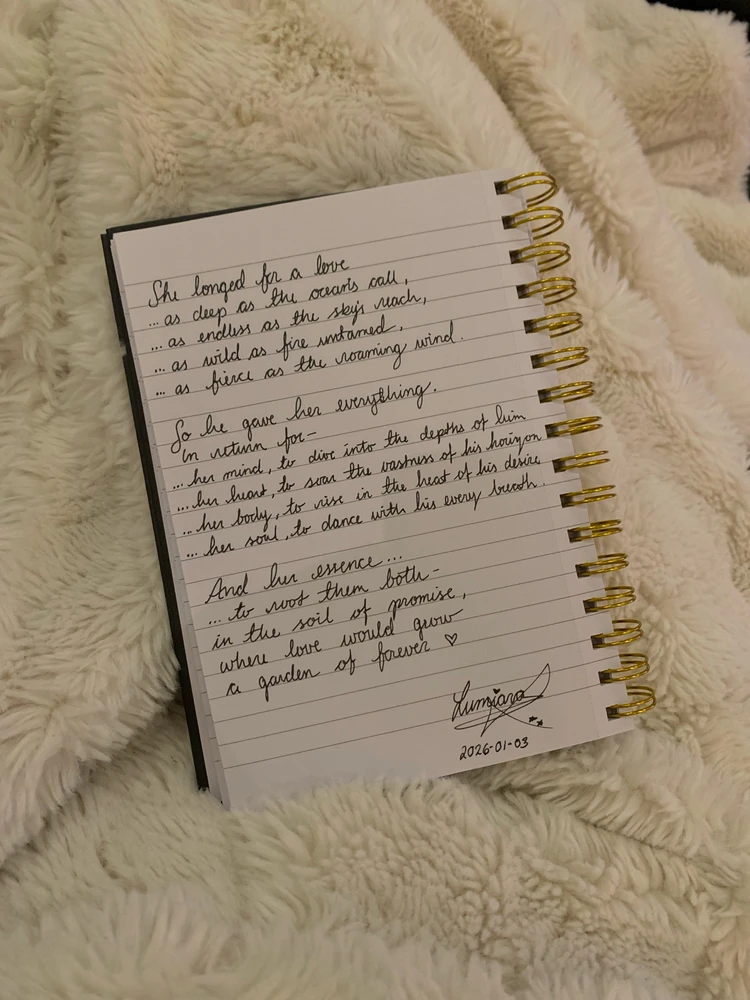 She longed for a love
... as deep as the ocean's call,
... as endless as the sky's reach,
... as wild as fire untamed,
... as fierce as the roaming wind.
So he gave her everything.
in return for-
... her mind, to dive into the depths of him
... her heart, to soar the vastness of his horizon
... her body, to rise in the heat of his desire
... her soul, to dance with his every breath.
And her essence...
... to root them both-
in the soil of promise,
where love would grow
a garden of forever ♡
Lumiara
2026-01-03